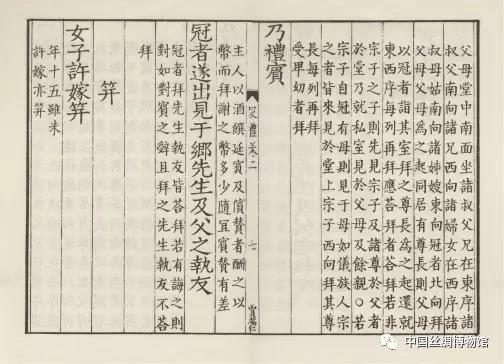 父母堂中南面坐諸叔父兄在東序諸
叔父南向諸兄西向諸婦女在西序諸
叔母姑南向諸姊嫂東向冠者北向拜
父母父母爲之起同居有尊長則父母
以冠者詣其室拜之尊長爲之起還就
東西序每列再拜應荅拜者荅拜若非
宗子之子則先見宗子及諸尊於父者
於堂乃就私室見於父母及餘親○若
宗子自冠有母則見于母如儀族人宗
之者皆來見於堂上宗子西向拜其尊
長每列再拜
受卑幼者拜
乃禮賓
七
主人以酒饌延賓及儐贊者酬之以
幣而拜謝之幣多少隨宜賓贊有差
冠者遂出見于鄉先生及父之執友
冠者拜先生執友皆荅拜若有誨之則
對如對賓之辭且拜之先生執友不荅
拜
笄
女子許嫁笄
年十五雖未
許嫁亦笄
中国丝绸博物馆